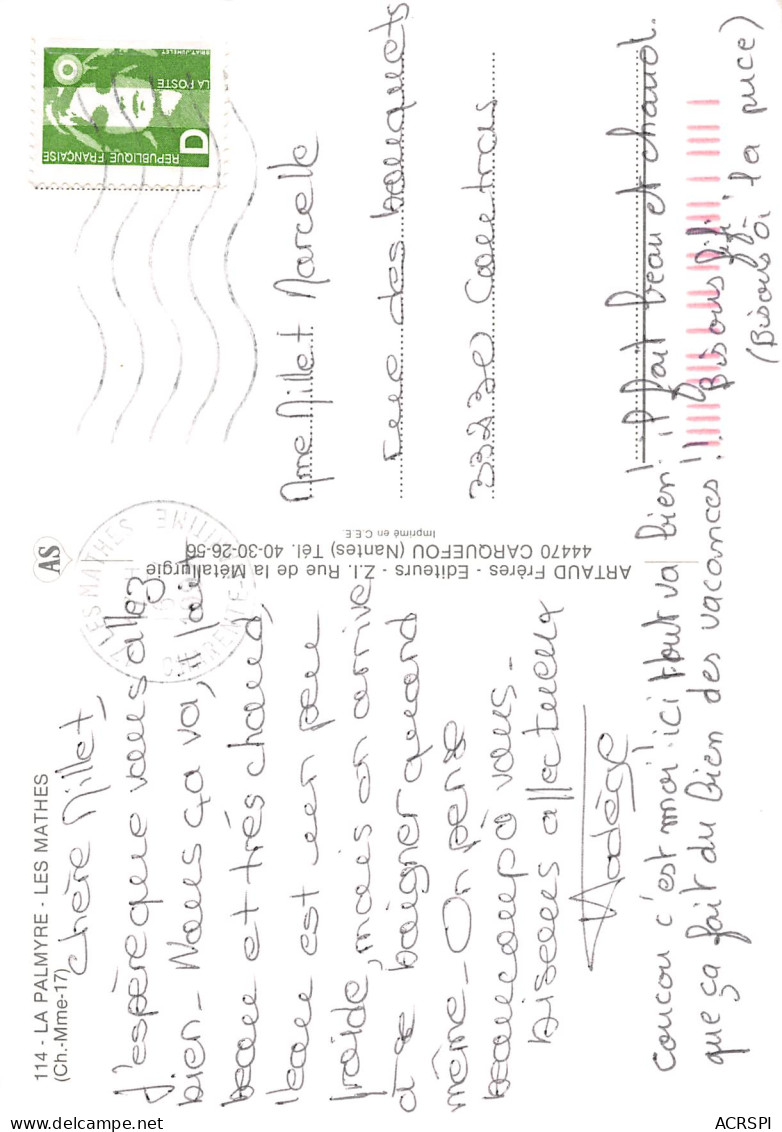 114 - LA PALMYRE - LES MATHES
(Ch.-Mme-17)
Chère Millet,
J'espère que vous allez
bien - Nous ça va, il fait
beau et très chaud,
l'eau est un peu
froide, mais on arrive
à se baigner quand
même - On pense
beaucoup à vous -
Bisous affectueux
Nadège
coucou c'est moi! ici tout va bien! il fait beau et chaud.
que ça fait du bien des vacances!! Bisous fifi
(Bisous à la puce)
AS
ARTAUD Frères - Editeurs - Z.I. Rue de la Métallurgie
44470 CARQUEFOU (Nantes) Tél. 40-30-26-56
Imprimé en C.E.E.
LES MATHES
MARITIME
REPUBLIQUE FRANÇAISE
D
LA POSTE
BRIAT.JUMELET
Mme Millet Marcelle
rue des bouquets
33230 Coutras
ACRSPI